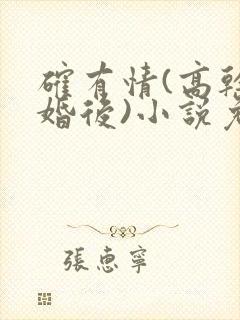 確有情(高幹
婚後)小說免
張惠寧